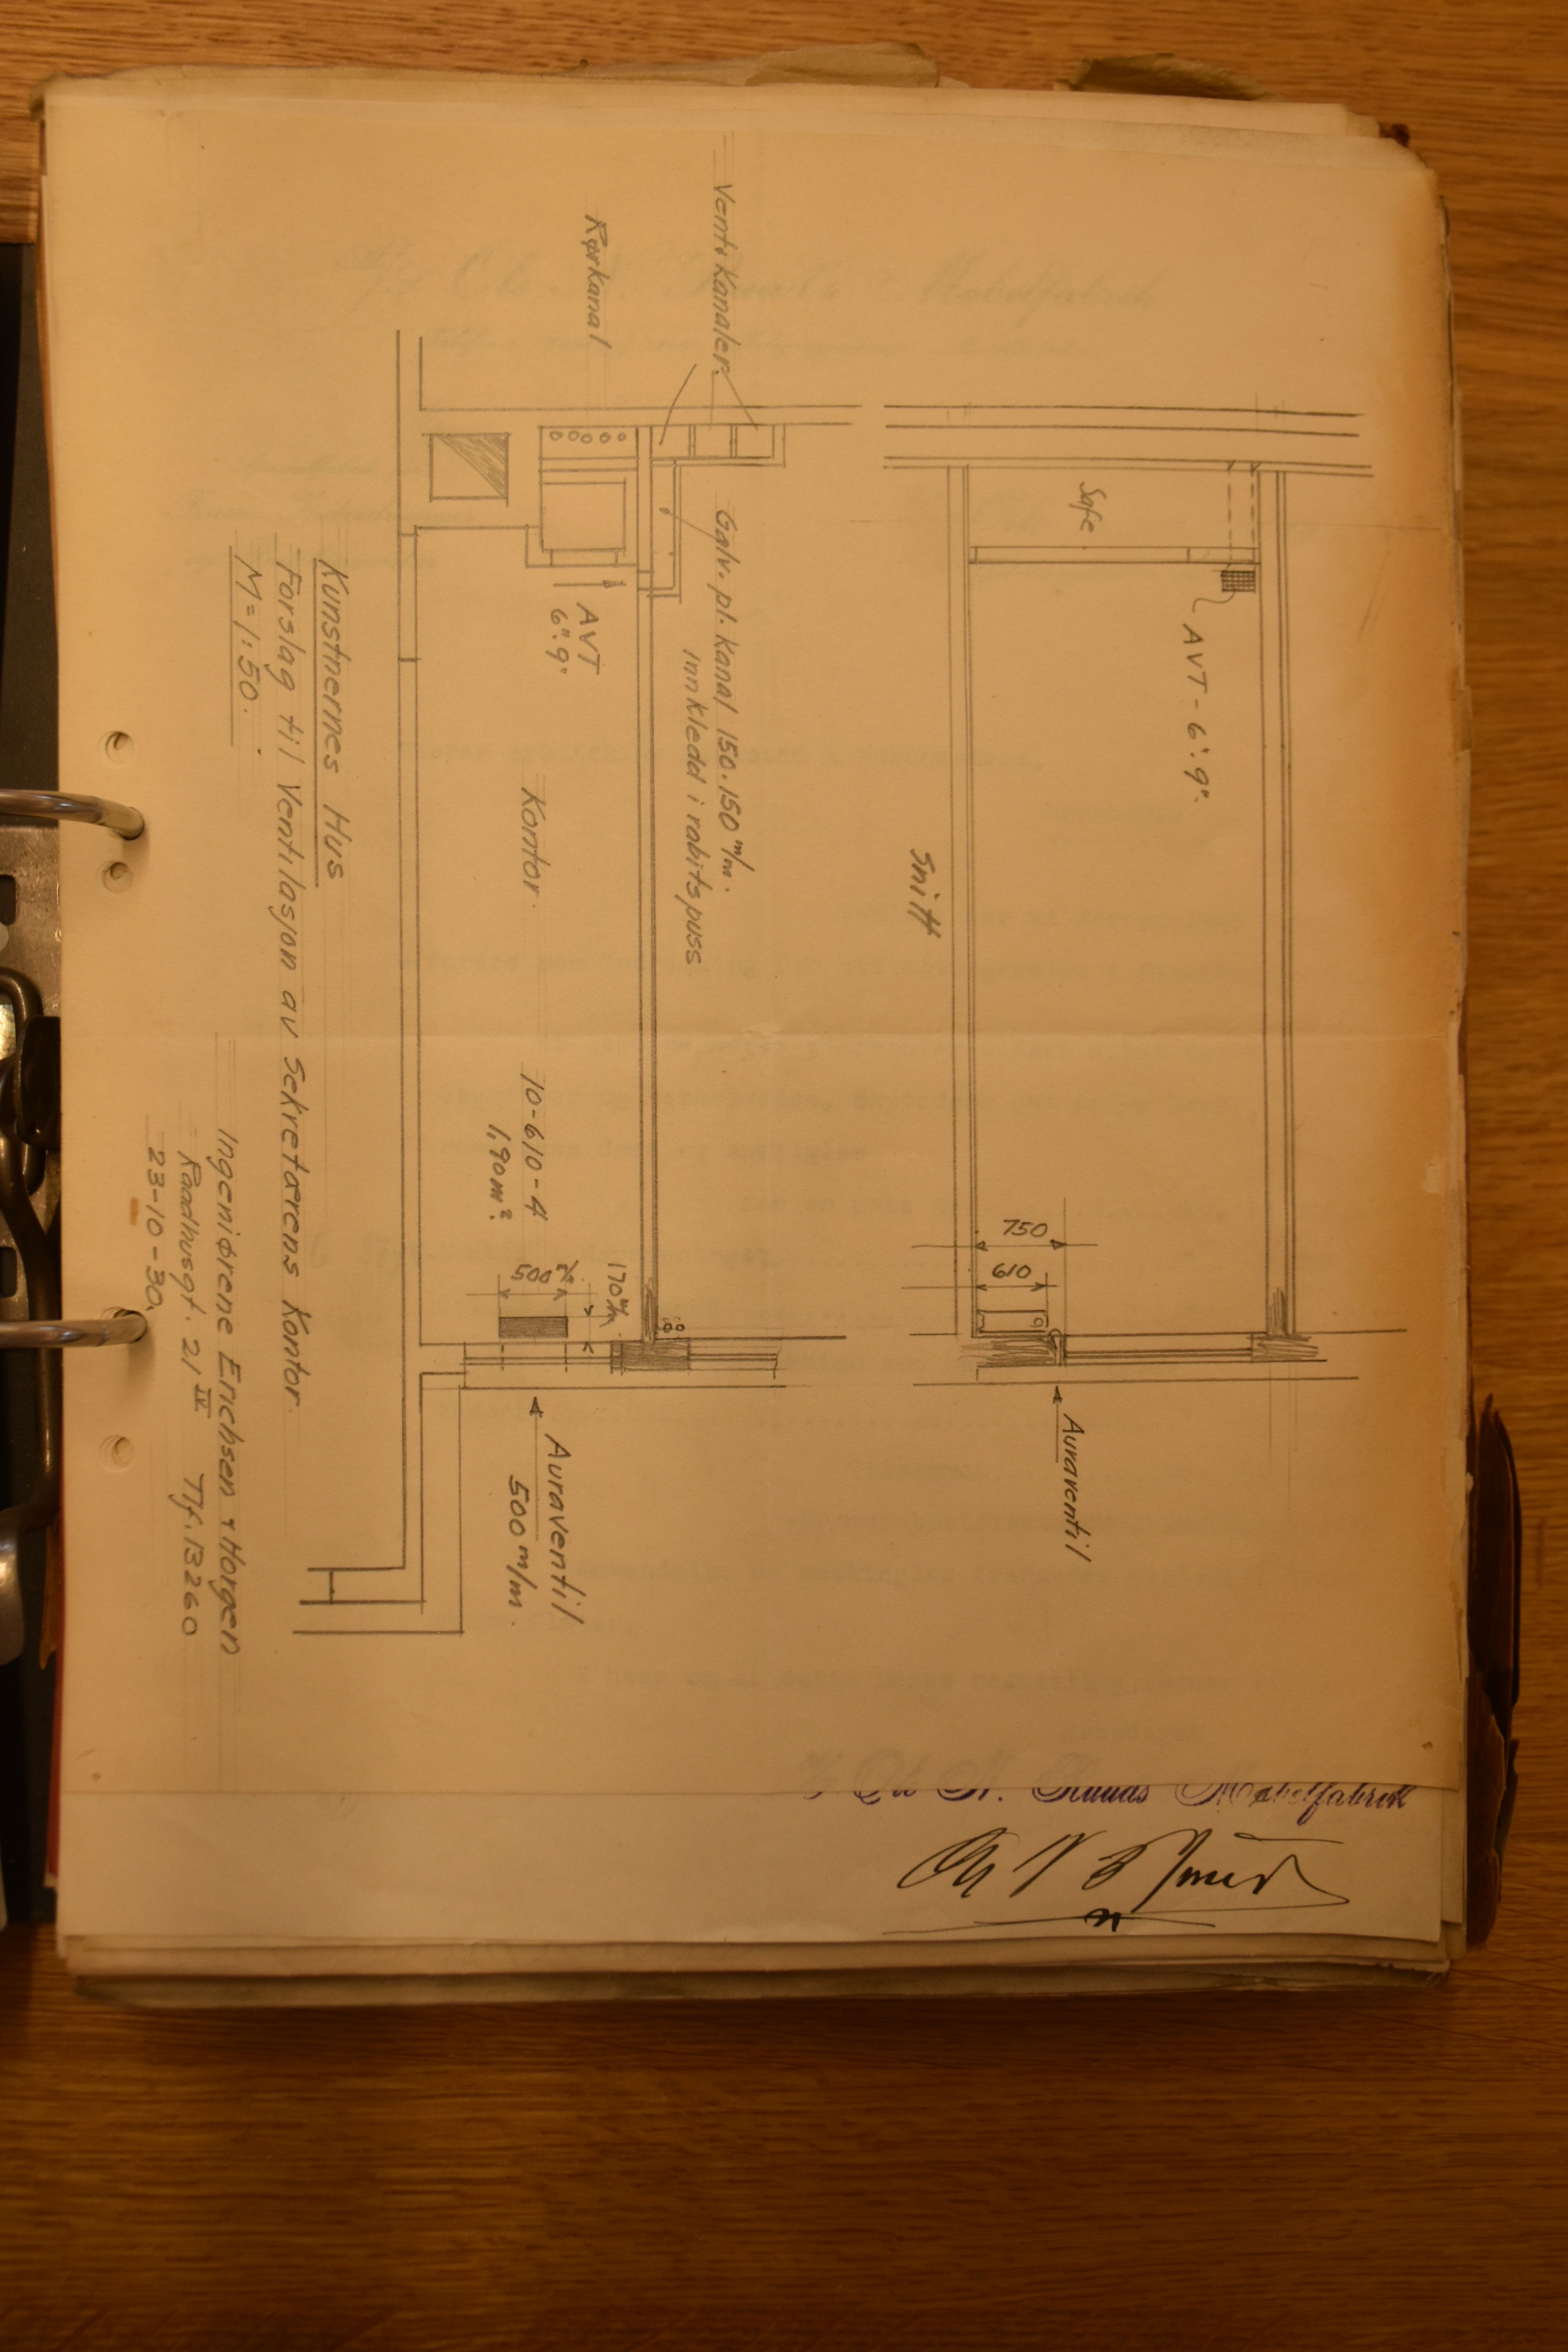 Safe
AVT - 6". 9".
750
610
Auraventil
Snitt
Vent. Kanaler.
Rørkanal
Galv. pl. Kanal 150.150 m/m.
innkledd i rabitspuss
AVT
6". 9"
Kontor
10-610-4
1,90 m²
170 m/m
500 m/m
Auraventil
500 m/m.
Kunstnernes Hus
Forslag til Ventilasjon av Sekretærens Kontor.
M = 1:50.
Ingeniørene Erichsen + Horgen
Raadhusgt. 21 IV Tlf. 13260
23-10-30.
Ruuds Møbelfabrik